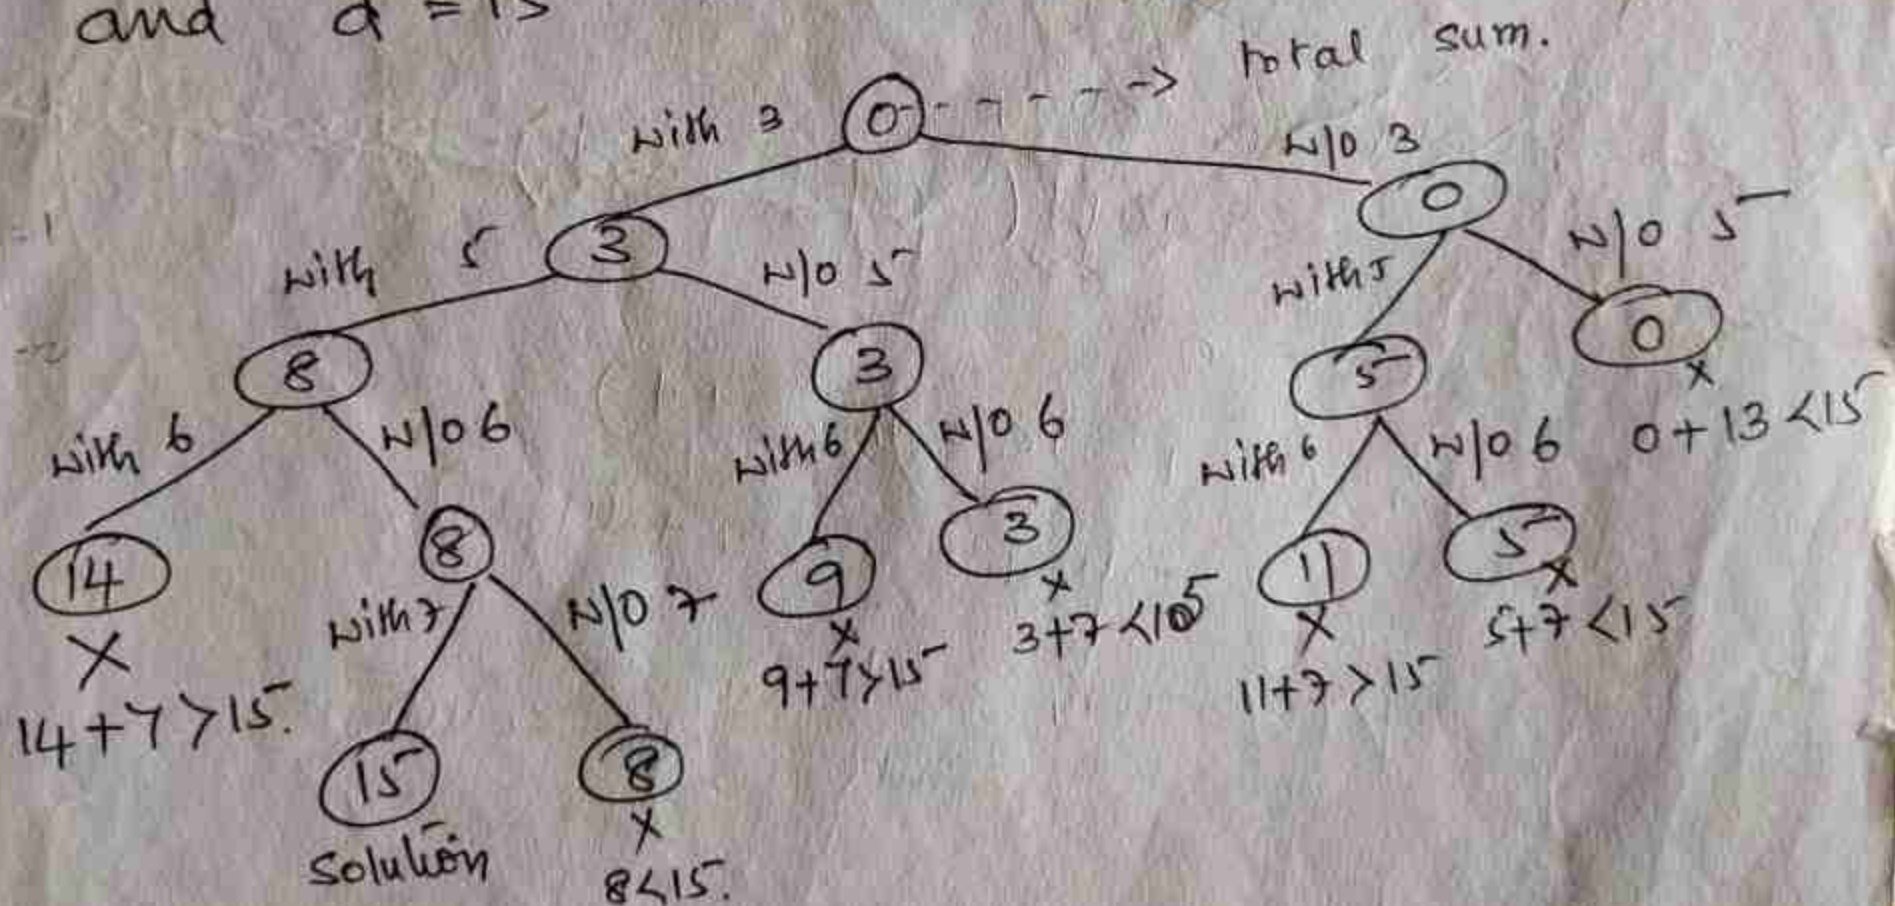 and d = 15
0 - - - - -> total sum.
with 3
w/o 3
3
0
with 5
w/o 5
with 5
w/o 5
8
3
5
0
x
0 + 13 < 15
with 6
w/o 6
with 6
w/o 6
with 6
w/o 6
14
8
9
3
11
5
X
x
x
x
x
14 + 7 > 15.
9+7>15
3+7 <15
11+7 >15
5+7 <15
with 7
w/o 7
15
8
solution
x
8<15.